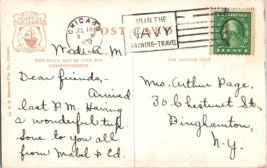 CHICAGO
JUL 14
JOIN THE
NAVY
TRAINING-TRAVEL
POST CARD
THIS SPACE MAY BE USED FOR
CORRESPONDENCE
Wed. A.M.
Dear friends,-
Arrived
last P.M. Having
a wonderful trip.
Love to you all
from Mabel & Ed.
Mrs. Arthur Page,
30 Chestnut St.,
Binghamton,
N.Y.